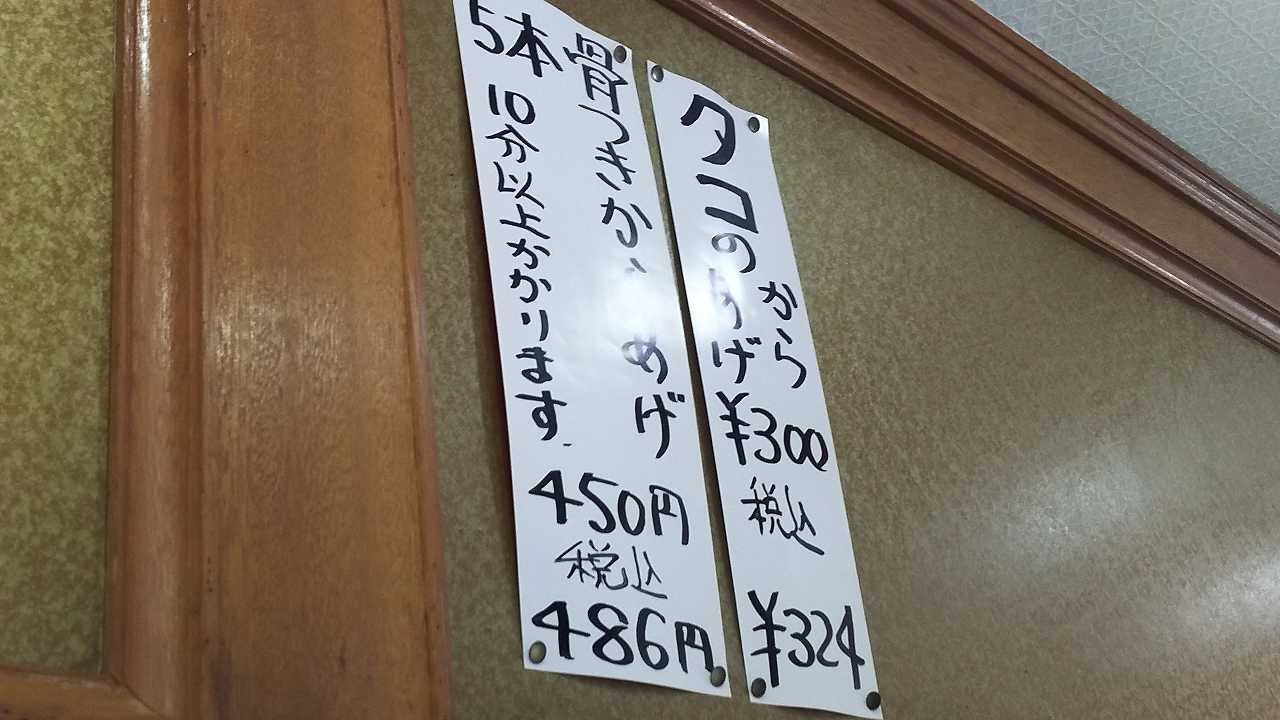 タコの
から
あげ
¥300
税込
¥324
骨つきからあげ
5本
10分以上かかります
450円
税込
486円